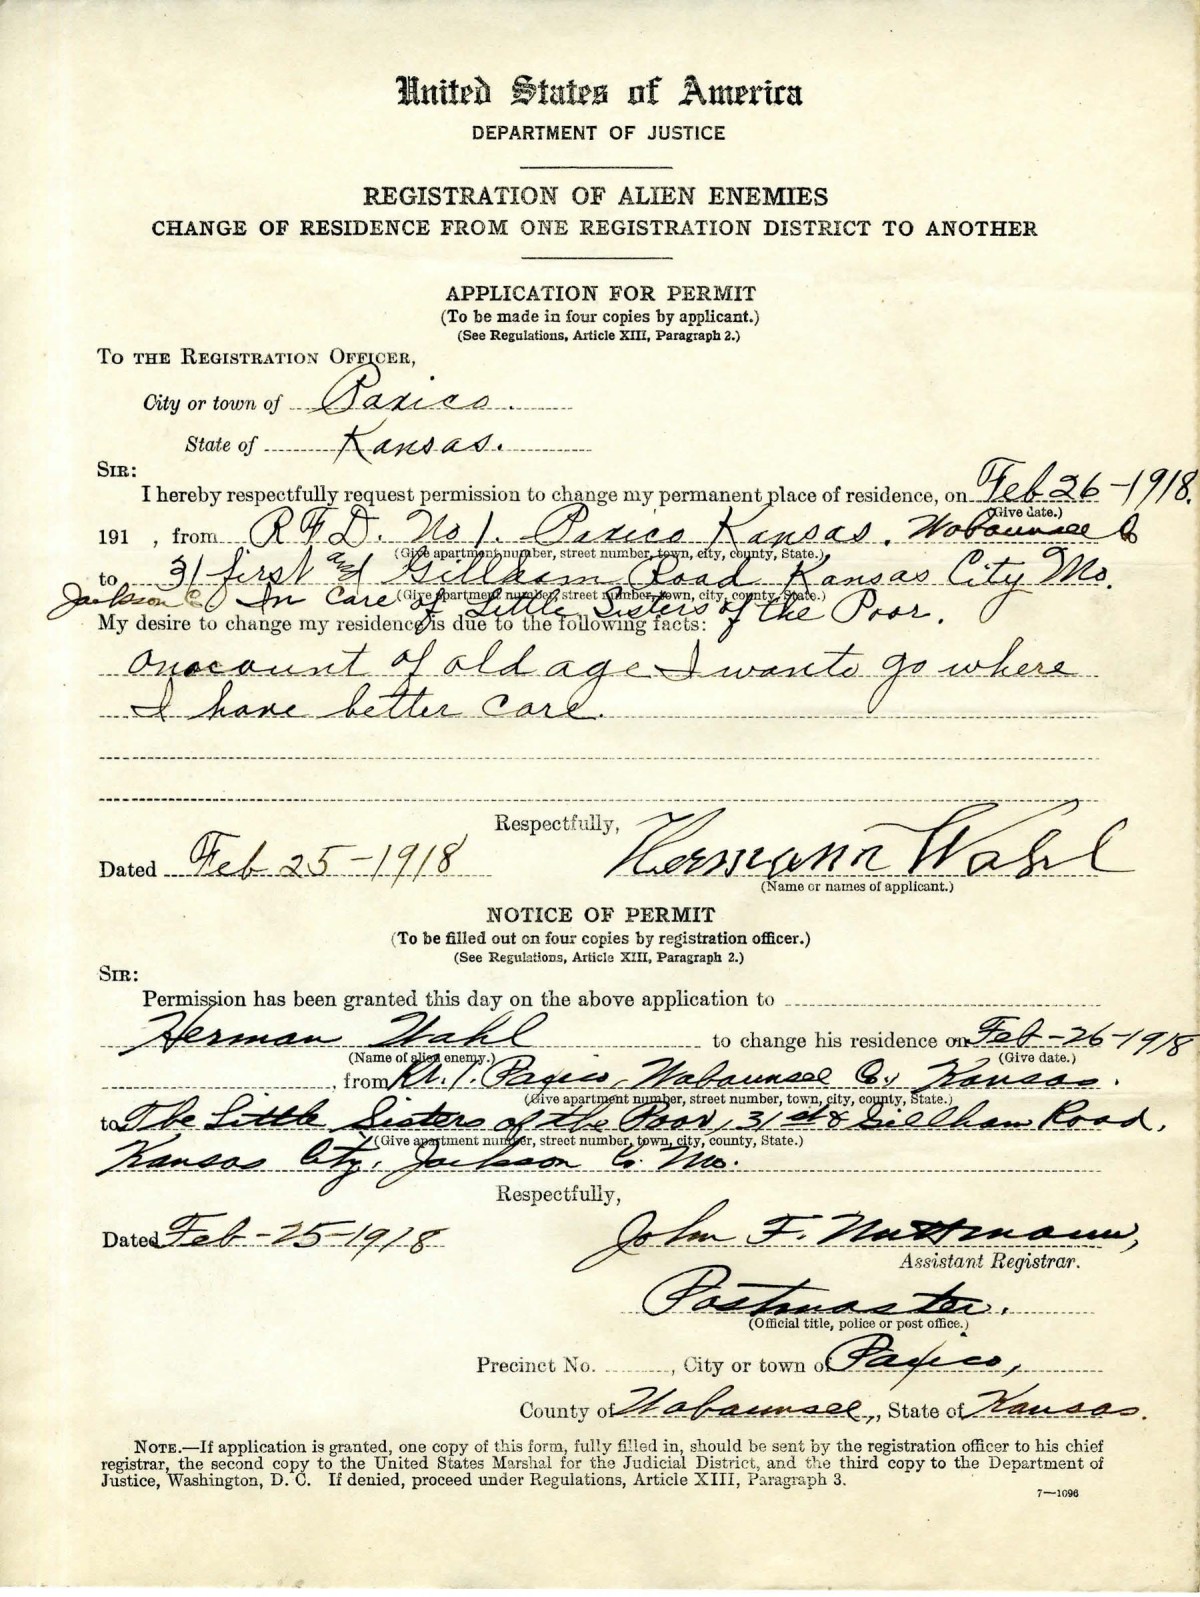 United States of America
DEPARTMENT OF JUSTICE
REGISTRATION OF ALIEN ENEMIES
CHANGE OF RESIDENCE FROM ONE REGISTRATION DISTRICT TO ANOTHER
APPLICATION FOR PERMIT
(To be made in four copies by applicant.)
(See Regulations, Article XIII, Paragraph 2.)
TO THE REGISTRATION OFFICER,
City or town of Paxico.
State of Kansas.
SIR:
I hereby respectfully request permission to change my permanent place of residence, on Feb 26-1918.
(Give date.)
191 , from R F D. No 1. Paxico Kansas. Wabaunsee Co
(Give apartment number, street number, town, city, county, State.)
to 31 first and Gillham Road Kansas City Mo.
(Give apartment number, street number, town, city, county, State.)
Jackson Co In Care of Little Sisters of the Poor.
My desire to change my residence is due to the following facts:
on account of old age I want to go where
I have better care.
Respectfully,
Dated Feb 25-1918 Hermann Wahl
(Name or names of applicant.)
NOTICE OF PERMIT
(To be filled out on four copies by registration officer.)
(See Regulations, Article XIII, Paragraph 2.)
SIR:
Permission has been granted this day on the above application to
Herman Wahl to change his residence on Feb-26-1918
(Name of alien enemy.) (Give date.)
, from 1. Paxico, Wabaunsee Co., Kansas.
(Give apartment number, street number, town, city, county, State.)
to The Little Sisters of the Poor, 31st & Gillham Road,
(Give apartment number, street number, town, city, county, State.)
Kansas City, Jackson Co. Mo.
Respectfully,
Dated Feb-25-1918 John F. Nuttmann,
Assistant Registrar.
Postmaster.
(Official title, police or post office.)
Precinct No. , City or town of Paxico,
County of Wabaunsee, State of Kansas.
NOTE.—If application is granted, one copy of this form, fully filled in, should be sent by the registration officer to his chief
registrar, the second copy to the United States Marshal for the Judicial District, and the third copy to the Department of
Justice, Washington, D. C. If denied, proceed under Regulations, Article XIII, Paragraph 3.
7—1096